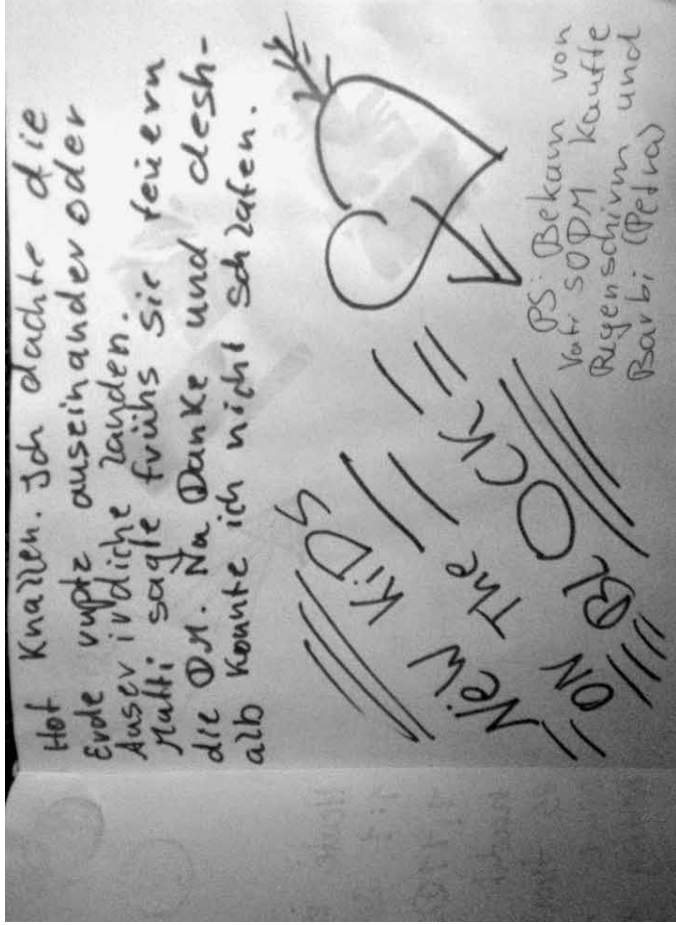 Hof Knallen. Ich dachte die
Erde rupft auseinander oder
Auserirdliche landen.
Mutti sagte frühs sie feiern
die DM. Na Danke und desh-
alb konnte ich nicht schlafen.
NEW KiDS
ON The
BLOCK
PS: Bekam von
Vati 50DM kaufte
Regenschirm und
Barbi (Petra)